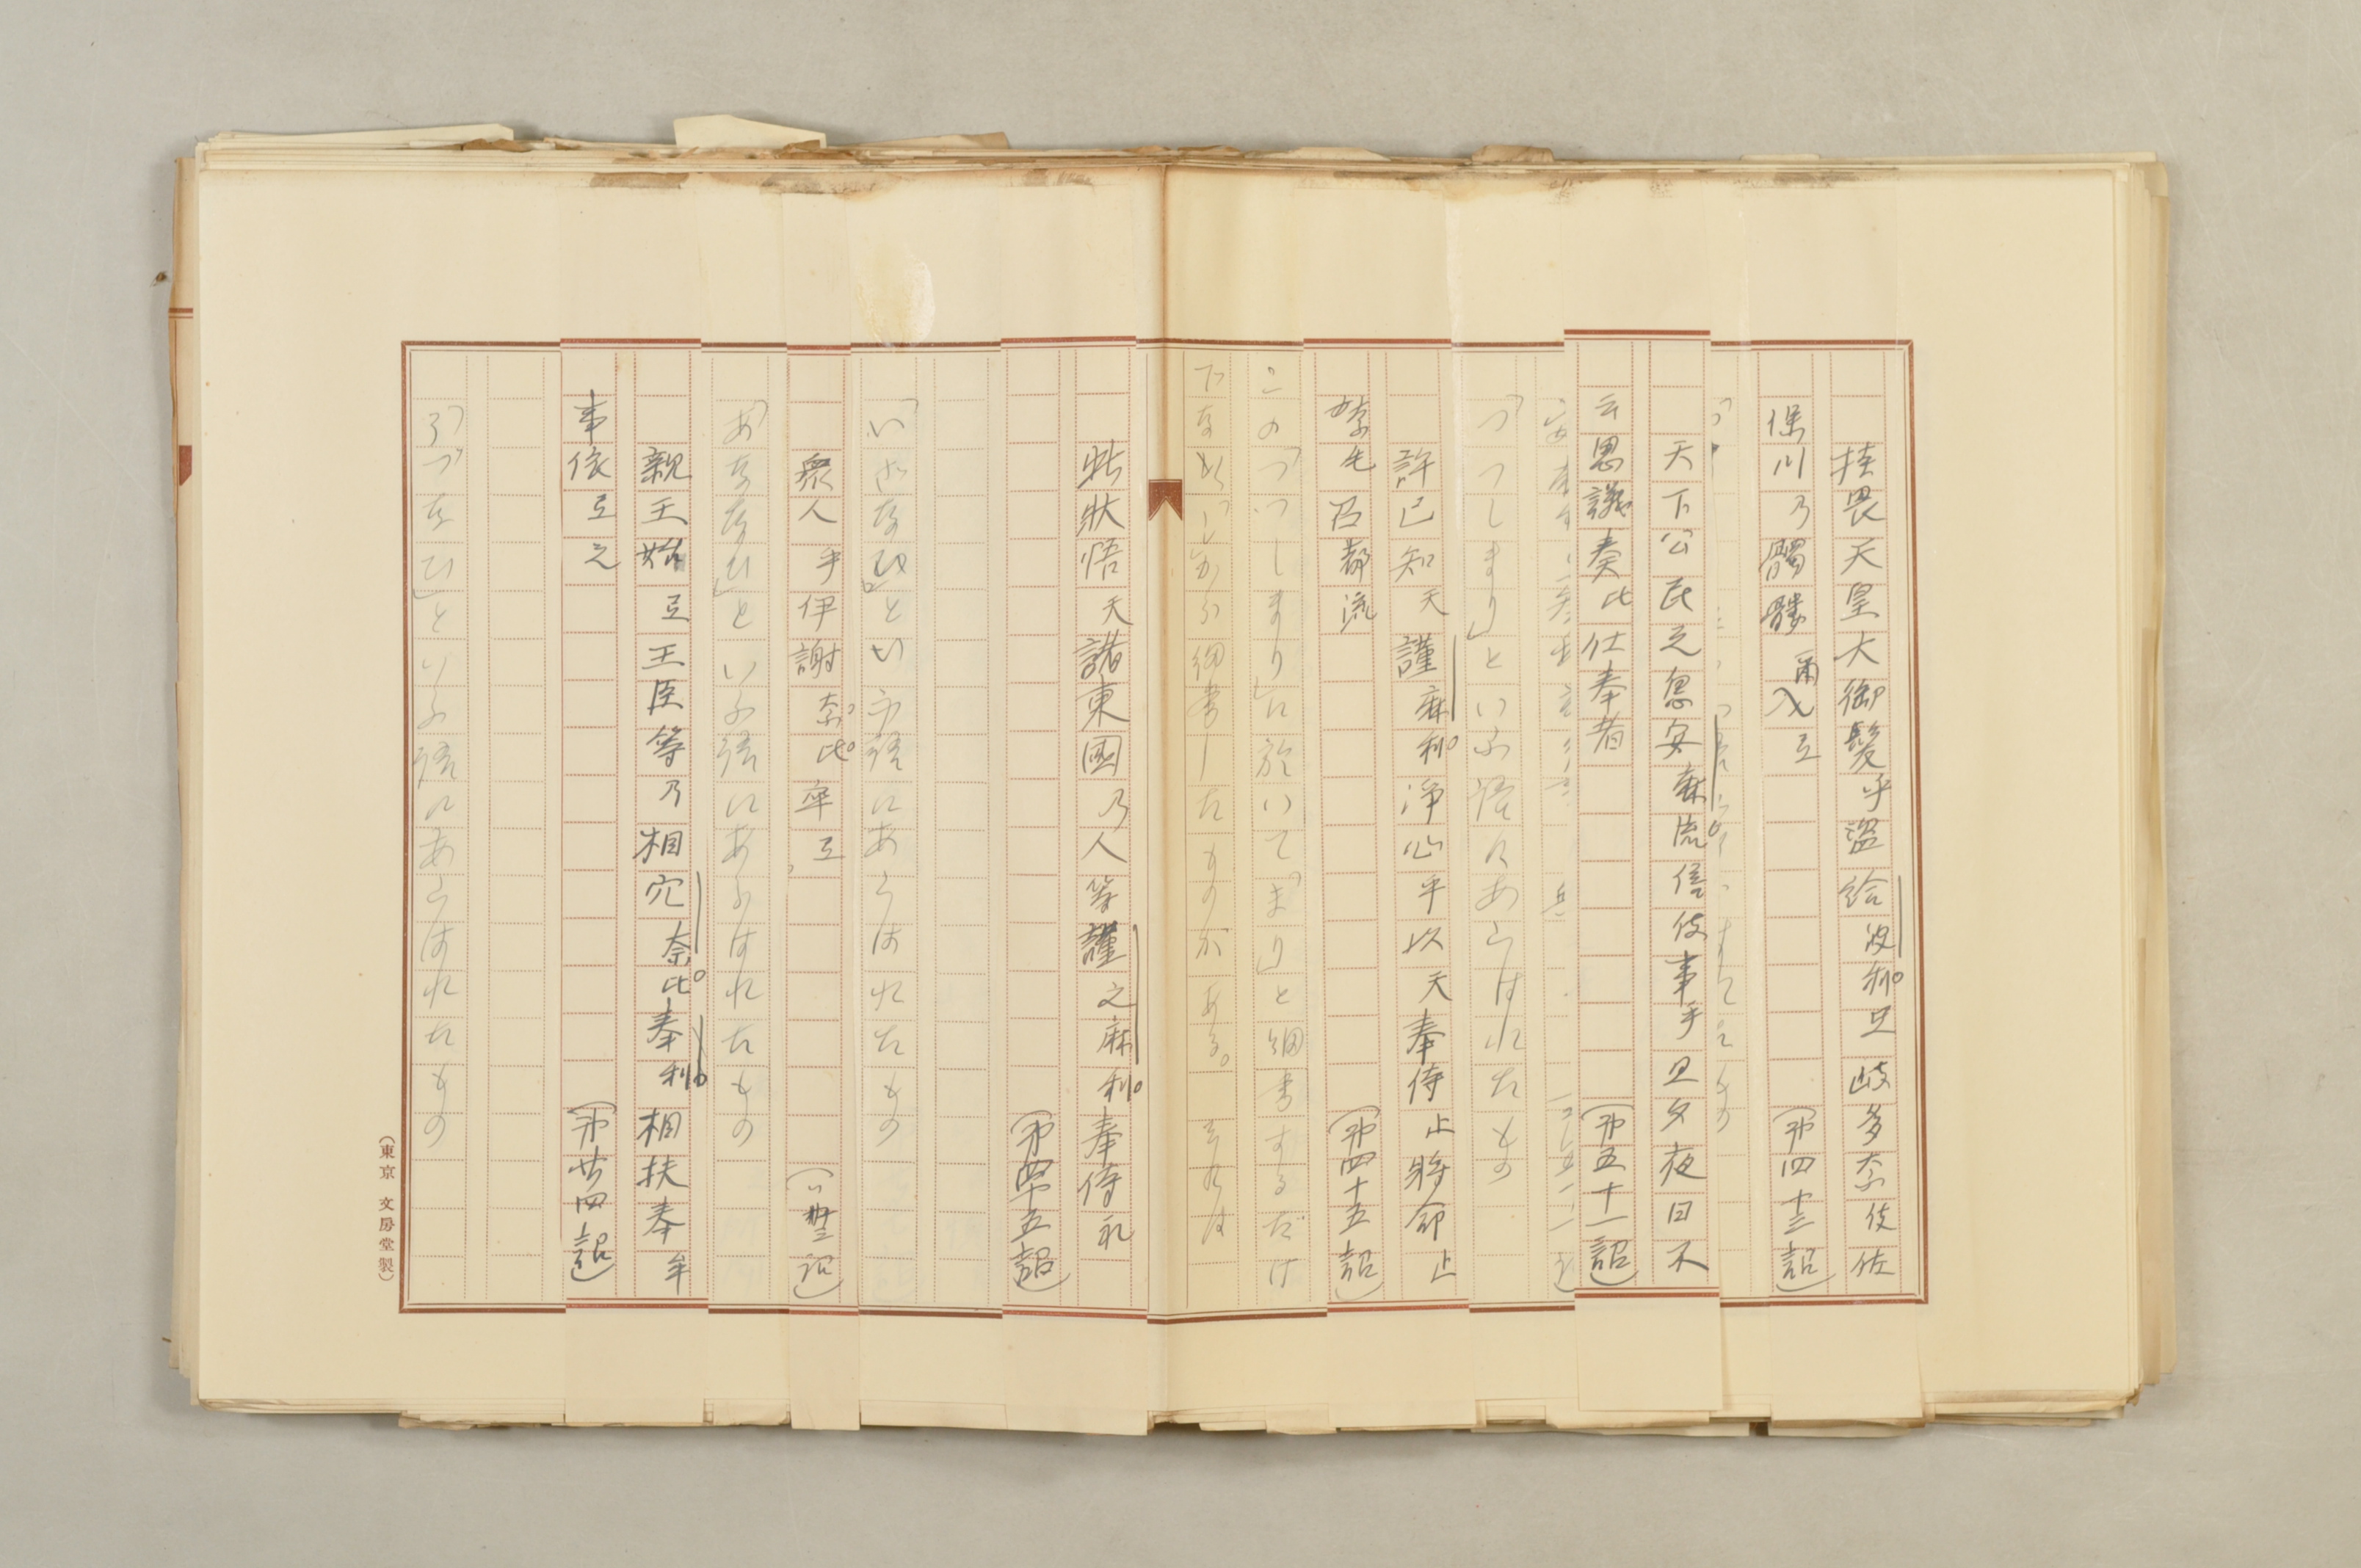 挂畏天皇大御髪乎盗給波利弖岐多奈伎佐
保川乃髑髏爾入弖
（第四十三詔）
天下公民之息安麻流倍伎事乎旦夕夜日不
云思議奏比仕奉者
（第五十一詔）
「つつしまり」といふ語にあらはれたもの
許己知天謹麻利浄心乎以天奉侍止将命止
奈毛召都流
（第四十五詔）
この「つつしまり」に於いて「まり」と細書するだけ
でなく「し」から細書したものがある。それは
此状悟天諸東國乃人等謹之麻利奉侍礼
（第四十五詔）
「いざなひ」といふ語にあらはれたもの
衆人乎伊謝奈比率弖
「あななひ」といふ語にあらはれたもの
親王始弖王臣等乃相穴奈比奉利相扶奉牟
事依弖之
（第廿四詔）
「うづなひ」といふ語にあらはれたもの
（東京 文房堂製）